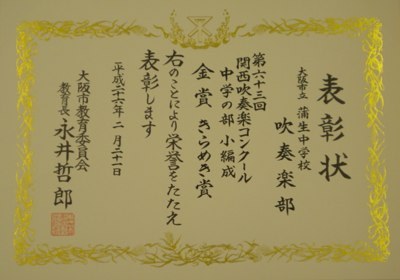 表彰状
大阪市立 蒲生中学校
吹奏楽部
第六十三回
関西吹奏楽コンクール
中学の部 小編成
金賞 きらめき賞
右のことにより栄誉をたたえ
表彰します
平成二十六年二月二十一日
大阪市教育委員会
教育長 永井哲郎